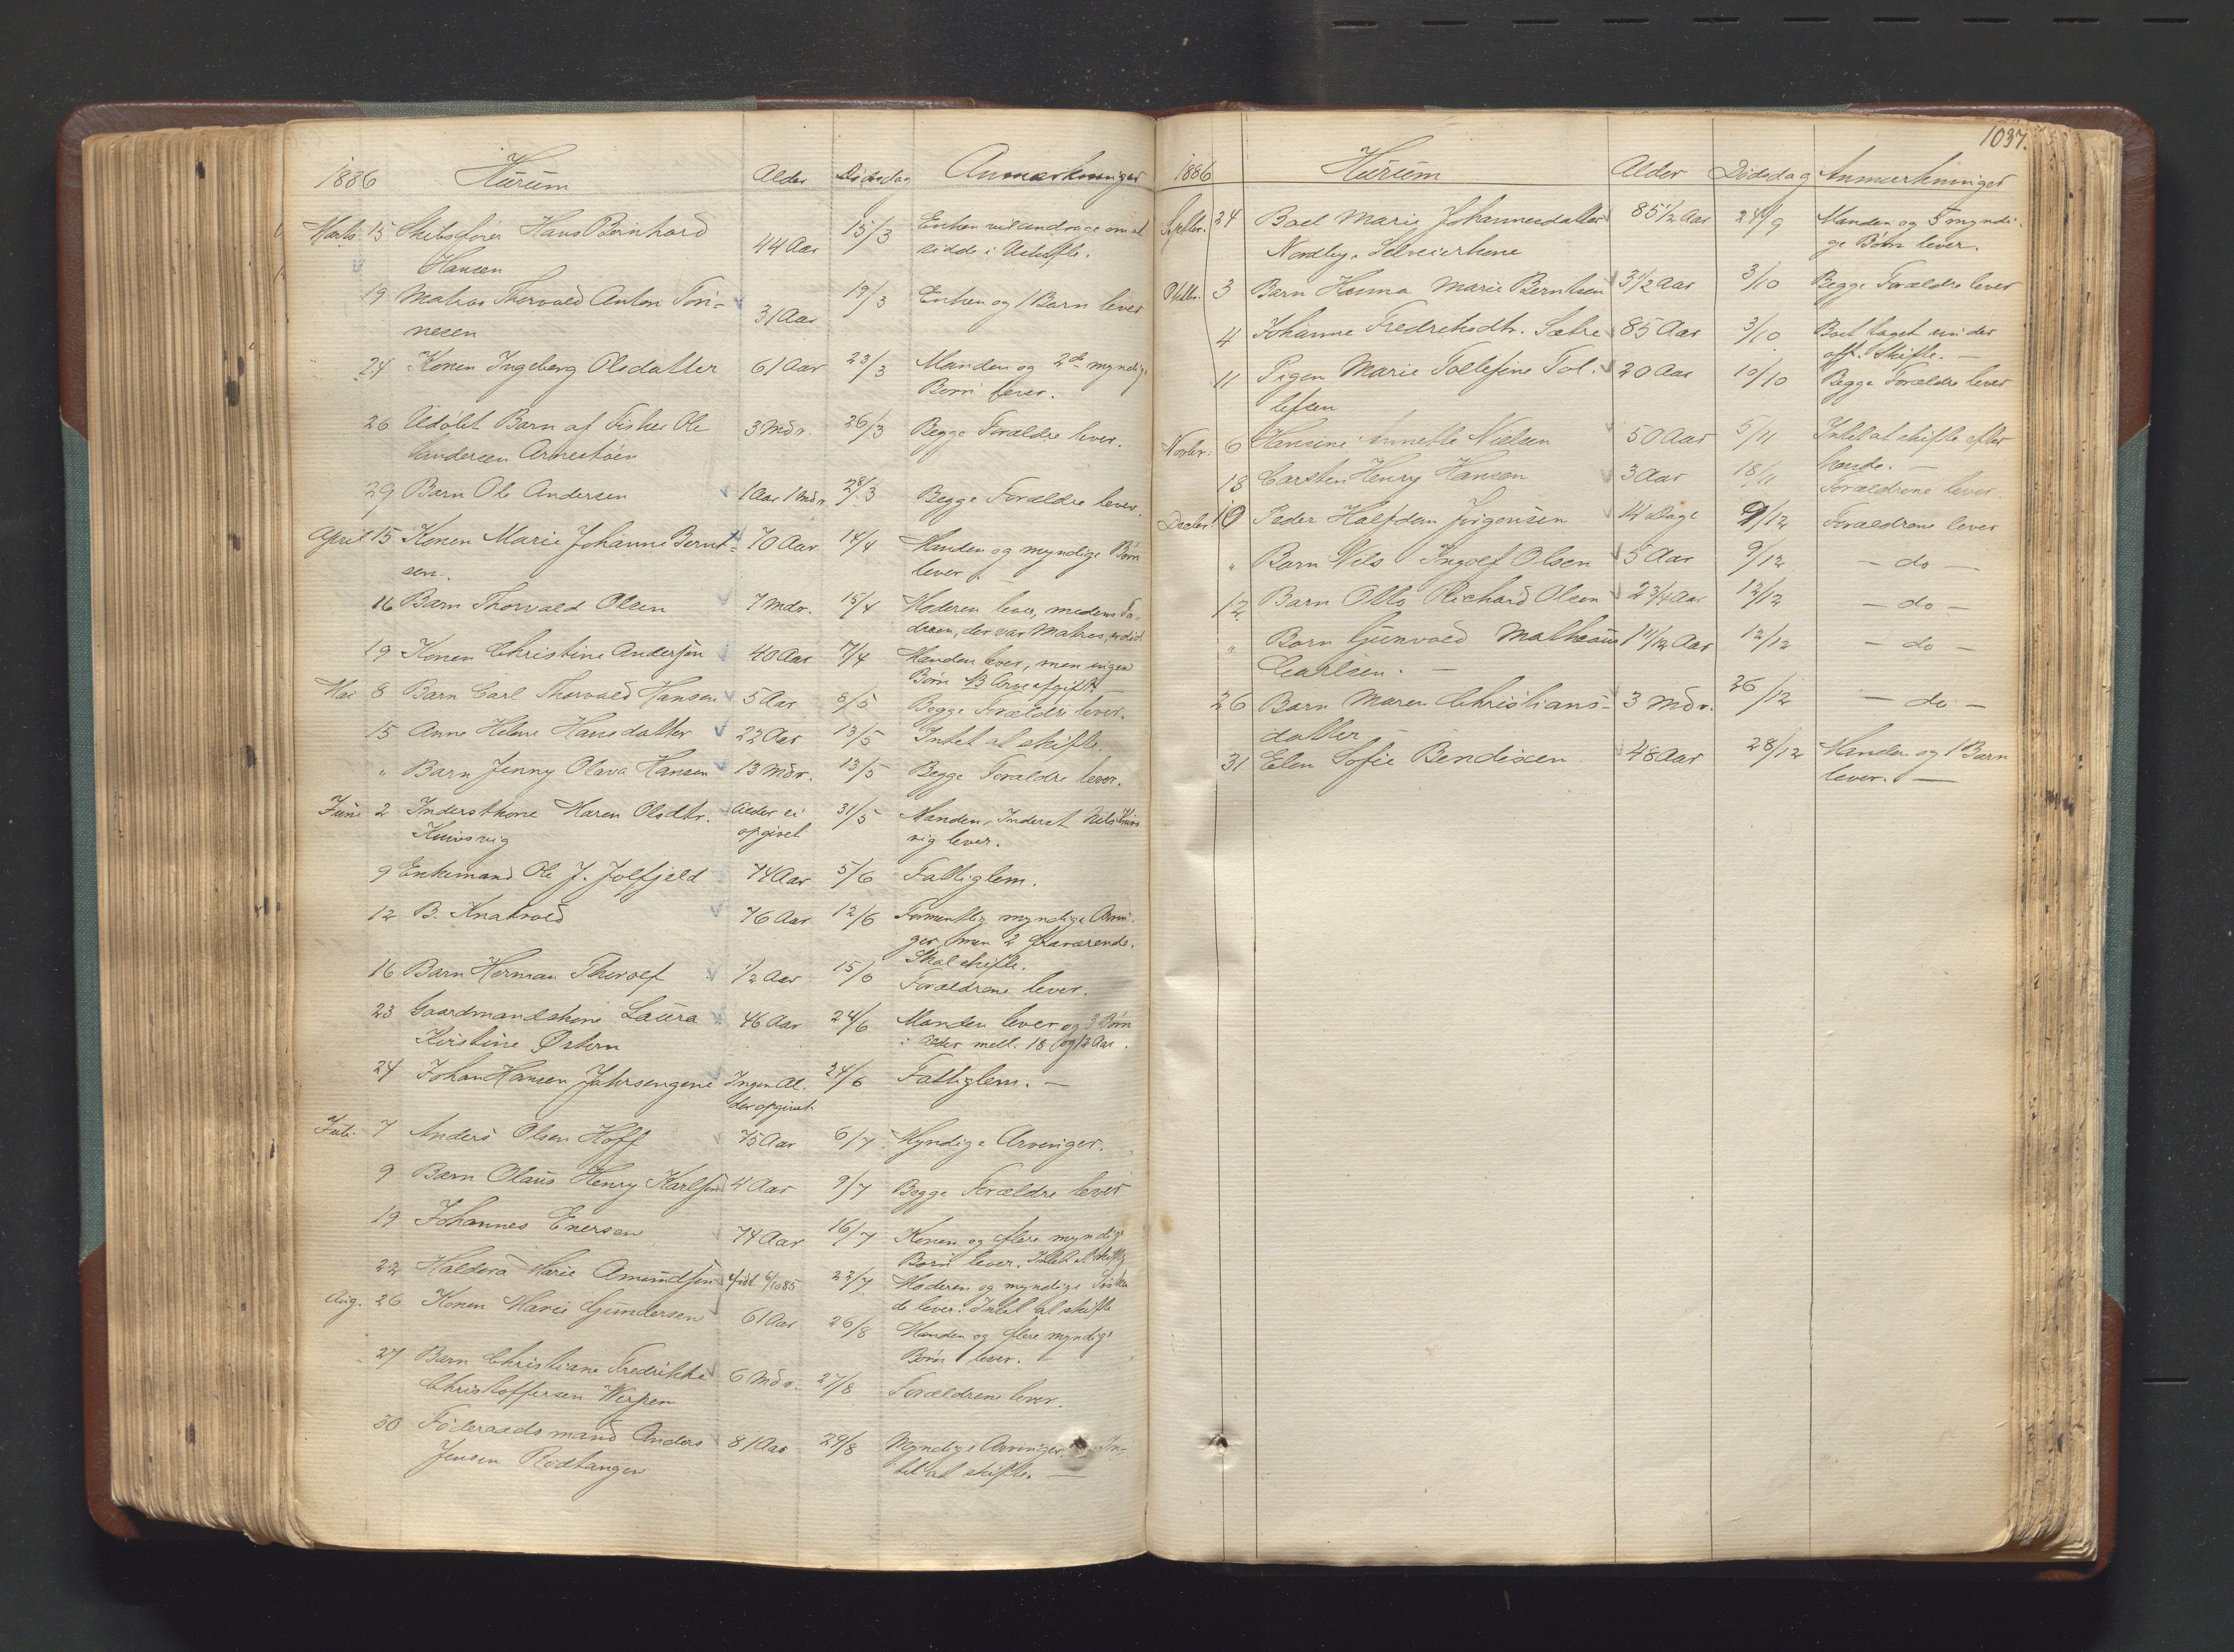 1886 Hurum Alder Dødsdag Anmærkninger
Marts 15 Skibsfører Hans Bernhard 44 Aar 15/3 Enken vil andrage om at
Hansen sidde i Uskifte.
19 Matros Thorvald Anton Tori- 31 Aar 19/3 Enken og 1 Barn lever
nesen
24 Konen Ingeborg Olsdatter 61 Aar 23/3 Manden og 2de myndige
Børn lever.
26 Udøbt Barn af Fisker Ole 3 Mdr. 26/3 Begge Forældre lever.
Andersen Arnestøen
29 Barn Ole Andersen 1 Aar 1 Mdr. 28/3 Begge Forældre lever.
April 15 Konen Marie Johanne Bernt- 70 Aar 14/4 Manden og myndige Børn
sen. lever.
16 Barn Thorvald Olsen 7 Mdr. 15/4 Moderen lever, medens Fa-
deren, der var Matros, er død
19 Konen Christine Andersen 40 Aar 7/4 Manden lever, men ingen
Børn NB Arveafgift
Mai 8 Barn Carl Thorvald Hansen 5 Aar 8/5 Begge Forældre lever.
15 Anne Helene Hansdatter 22 Aar 13/5 Intet at skifte.
" Barn Jenny Olava Hansen 13 Mdr. 13/5 Begge Forældre lever.
Juni 2 Inderstkone Maren Olsdtr. Alder ei 31/5 Manden, Inderst Nils
Knivsvig opgivet vig lever.
9 Enkemand Ole J. Jolfjeld 74 Aar 5/6 Fattiglem.
12 B. Knatvold 76 Aar 12/6 Formentlig myndige Arvin-
ger, men 2 fraværende.
Skal skifte.
16 Barn Herman Thorolf 1/2 Aar 15/6 Forældrene lever.
23 Gaardmandskone Laura 46 Aar 24/6 Manden lever og 3 Børn
Kirstine Østern i Alder mell. 18 og 12 Aar.
24 Johan Hansen Jahrsengene Ingen Al- 24/6 Fattiglem. —
der opgivet
Juli 7 Anders Olsen Hoff 75 Aar 6/7 Myndige Arvinger.
9 Barn Olaus Henry Karlsen 4 Aar 9/7 Begge Forældre lever
19 Johannes Enersen 74 Aar 16/7 Konen og flere myndige
Børn lever. Intet at skifte
22 Haldora Marie Amundsen født 6/10 85 22/7 Moderen og myndige Søsken-
de lever. Intet at skifte
Aug. 26 Konen Marie Gundersen 61 Aar 26/8 Manden og flere myndige
Børn lever.
27 Barn Christiane Fredrikke 6 Mdr. 27/8 Forældrene lever.
Christoffersen Werpen
30 Føderaadsmand Anders 81 Aar 29/8 Myndige Arvinger. In-
Jensen Rødtangen tet at skifte. —
1037.
1886 Hurum Alder Dødsdag Anmærkninger
Septbr. 24 Boel Marie Johannesdatter 85 1/2 Aar 24/9 Manden og 5 myndi-
Nordby, Selveierkone ge Børn lever.
Oktbr. 3 Barn Hanna Marie Berntsen 3 1/2 Aar 3/10 Begge Forældre lever
4 Johanne Fredreksdtr. Sætre 85 Aar 3/10 Boet taget under
off. Skifte. —
11 Pigen Marie Tollefine Tol- 20 Aar 10/10 Begge Forældre lever
lefsen
Novbr. 6 Hansine Annette Nielsen 50 Aar 5/11 Intet at skifte efter
hende. —
18 Carsten Henry Hansen 3 Aar 18/11 Forældrene lever.
Decbr. 10 Peder Halfdan Jørgensen 14 Dage 9/12 Forældrene lever
" Barn Nils Ingolf Olsen 5 Aar 9/12 — do —
12 Barn Otto Richard Olsen 2 3/4 Aar 12/12 — do —
" Barn Gunvald Mathæus 1 11/12 Aar 12/12 — do —
Carlsen. —
26 Barn Maren Christians- 3 Mdr. 26/12 — do —
datter
31 Elen Sofie Bendixen 48 Aar 28/12 Manden og 1 Barn
lever. —